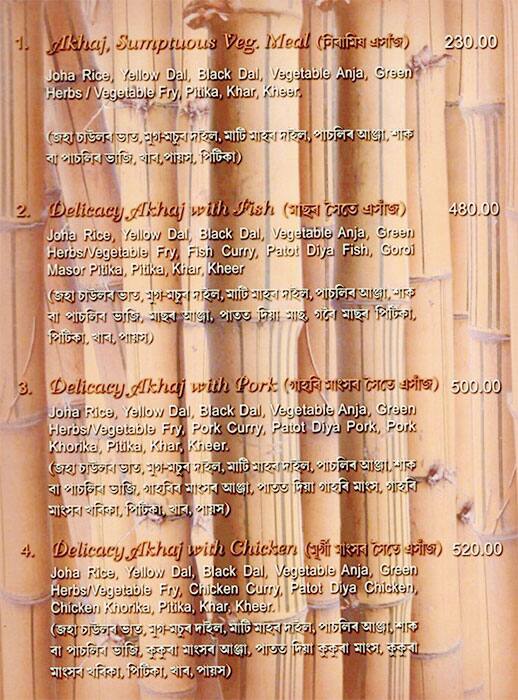 1. Akhaj, Sumptuous Veg. Meal (নিৰামিষ এসাঁজ) 230.00
Joha Rice, Yellow Dal, Black Dal, Vegetable Anja, Green
Herbs / Vegetable Fry, Pitika, Khar, Kheer.
(জহা চাউলৰ ভাত, মুগ-মচুৰ দাইল, মাটি মাহৰ দাইল, পাচলিৰ আঞ্জা, শাক
বা পাচলিৰ ভাজি, খাৰ,পায়স, পিটিকা)
2. Delicacy Akhaj with Fish (মাছৰ সৈতে এসাঁজ) 480.00
Joha Rice, Yellow Dal, Black Dal, Vegetable Anja, Green
Herbs/Vegetable Fry, Fish Curry, Patot Diya Fish, Goroi
Masor Pitika, Pitika, Khar, Kheer
(জহা চাউলৰ ভাত, মুগ-মচুৰ দাইল, মাটি মাহৰ দাইল, পাচলিৰ আঞ্জা, শাক
বা পাচলিৰ ভাজি, মাছৰ আঞ্জা, পাতত দিয়া মাছ, গৰৈ মাছৰ পিটিকা,
পিটিকা, খাৰ, পায়স)
3. Delicacy Akhaj with Pork (গাহৰি মাংসৰ সৈতে এসাঁজ) 500.00
Joha Rice, Yellow Dal, Black Dal, Vegetable Anja, Green
Herbs/Vegetable Fry, Pork Curry, Patot Diya Pork, Pork
Khorika, Pitika, Khar, Kheer.
(জহা চাউলৰ ভাত, মুগ-মচুৰ দাইল, মাটি মাহৰ দাইল, পাচলিৰ আঞ্জা, শাক
বা পাচলিৰ ভাজি, গাহৰিৰ মাংসৰ আঞ্জা, পাতত দিয়া গাহৰি মাংস, গাহৰি
মাংসৰ খৰিকা, পিটিকা, খাৰ, পায়স)
4. Delicacy Akhaj with Chicken (মূৰ্গী মাংসৰ সৈতে এসাঁজ) 520.00
Joha Rice, Yellow Dal, Black Dal, Vegetable Anja, Green
Herbs/Vegetable Fry, Chicken Curry, Patot Diya Chicken,
Chicken Khorika, Pitika, Khar, Kheer.
(জহা চাউলৰ ভাত, মুগ-মচুৰ দাইল, মাটি মাহৰ দাইল, পাচলিৰ আঞ্জা, শাক
বা পাচলিৰ ভাজি, কুকুৰা মাংসৰ আঞ্জা, পাতত দিয়া কুকুৰা মাংস, কুকুৰা
মাংসৰ খৰিকা, পিটিকা, খাৰ, পায়স)